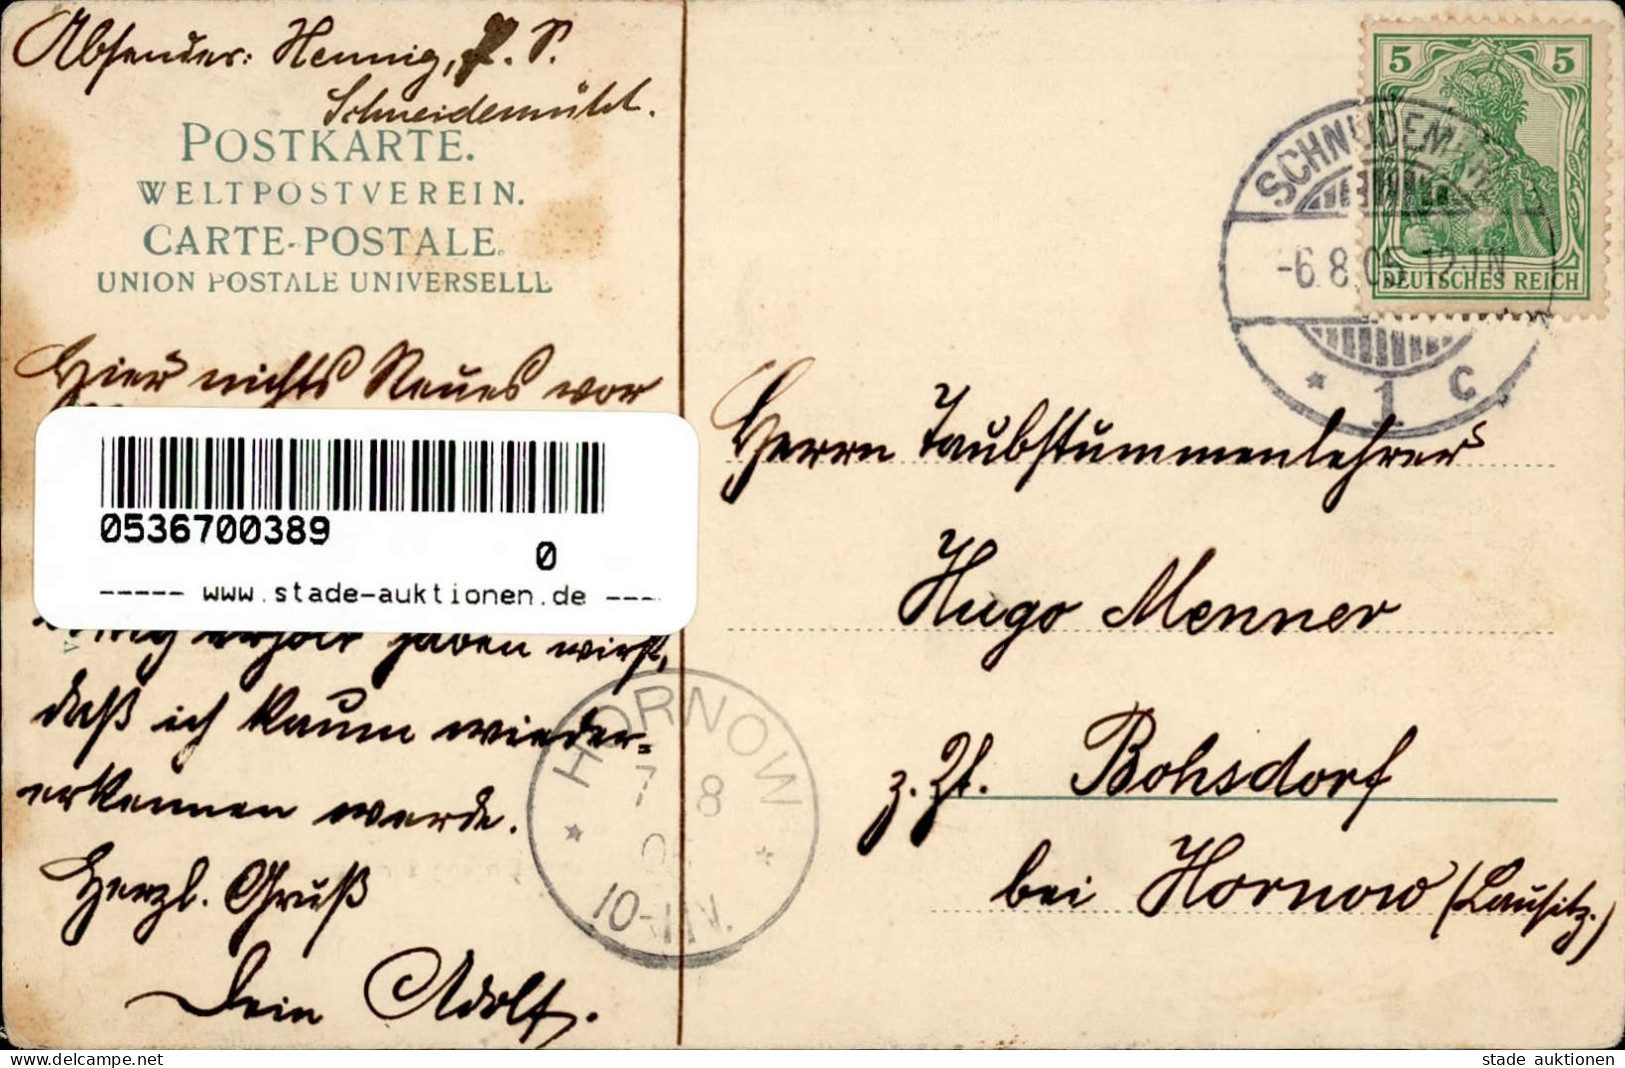 Absender: Hennig, P. S.
Schneidemühl.
POSTKARTE.
WELTPOSTVEREIN.
CARTE-POSTALE.
UNION POSTALE UNIVERSELLE
Hier nichts Neues vor
0536700389
0
----- www.stade-auktionen.de ----
erholt haben wirst,
daß ich kaum wieder-
erkennen werde.
Herzl. Gruß
Dein Adolf.
5 5
DEUTSCHES REICH
SCHNEIDEMÜHL
-6.8.05. 12-1N
* 1 c
Herrn Taubstummenlehrer
Hugo Menner
z. Zt. Bohsdorf
bei Hornow (Lausitz.)
HORNOW
7 8
* 05 *
10-11V.
stade auktionen
www.delcampe.net
stade auktionen